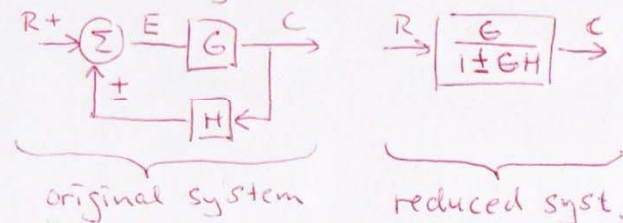 R + Σ E G C
±
H
original system
R G / 1 ± GH C
reduced syst.